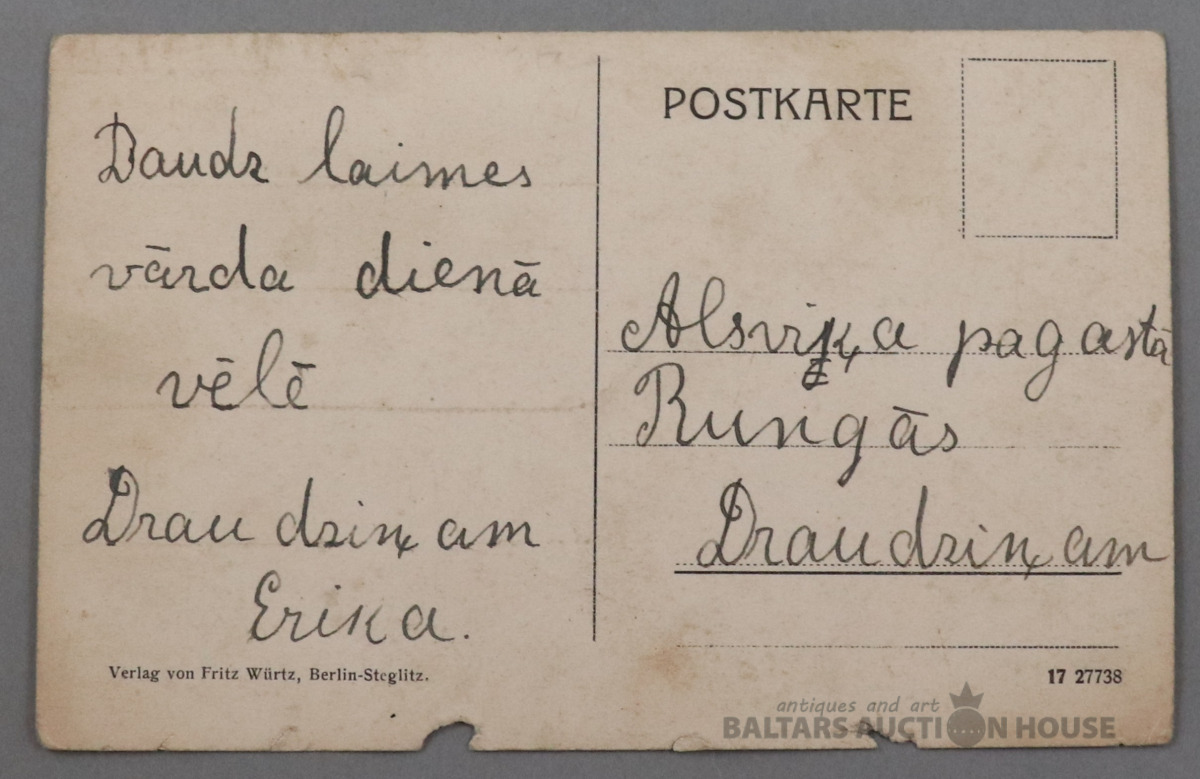 Daudz laimes
vārda dienā
vēlē
Draudziņam
Erika.
Verlag von Fritz Würtz, Berlin-Steglitz.
POSTKARTE
Alsviķa pagastā
Rungās
Draudziņam
17 27738
antiques and art
BALTARS AUCTION HOUSE